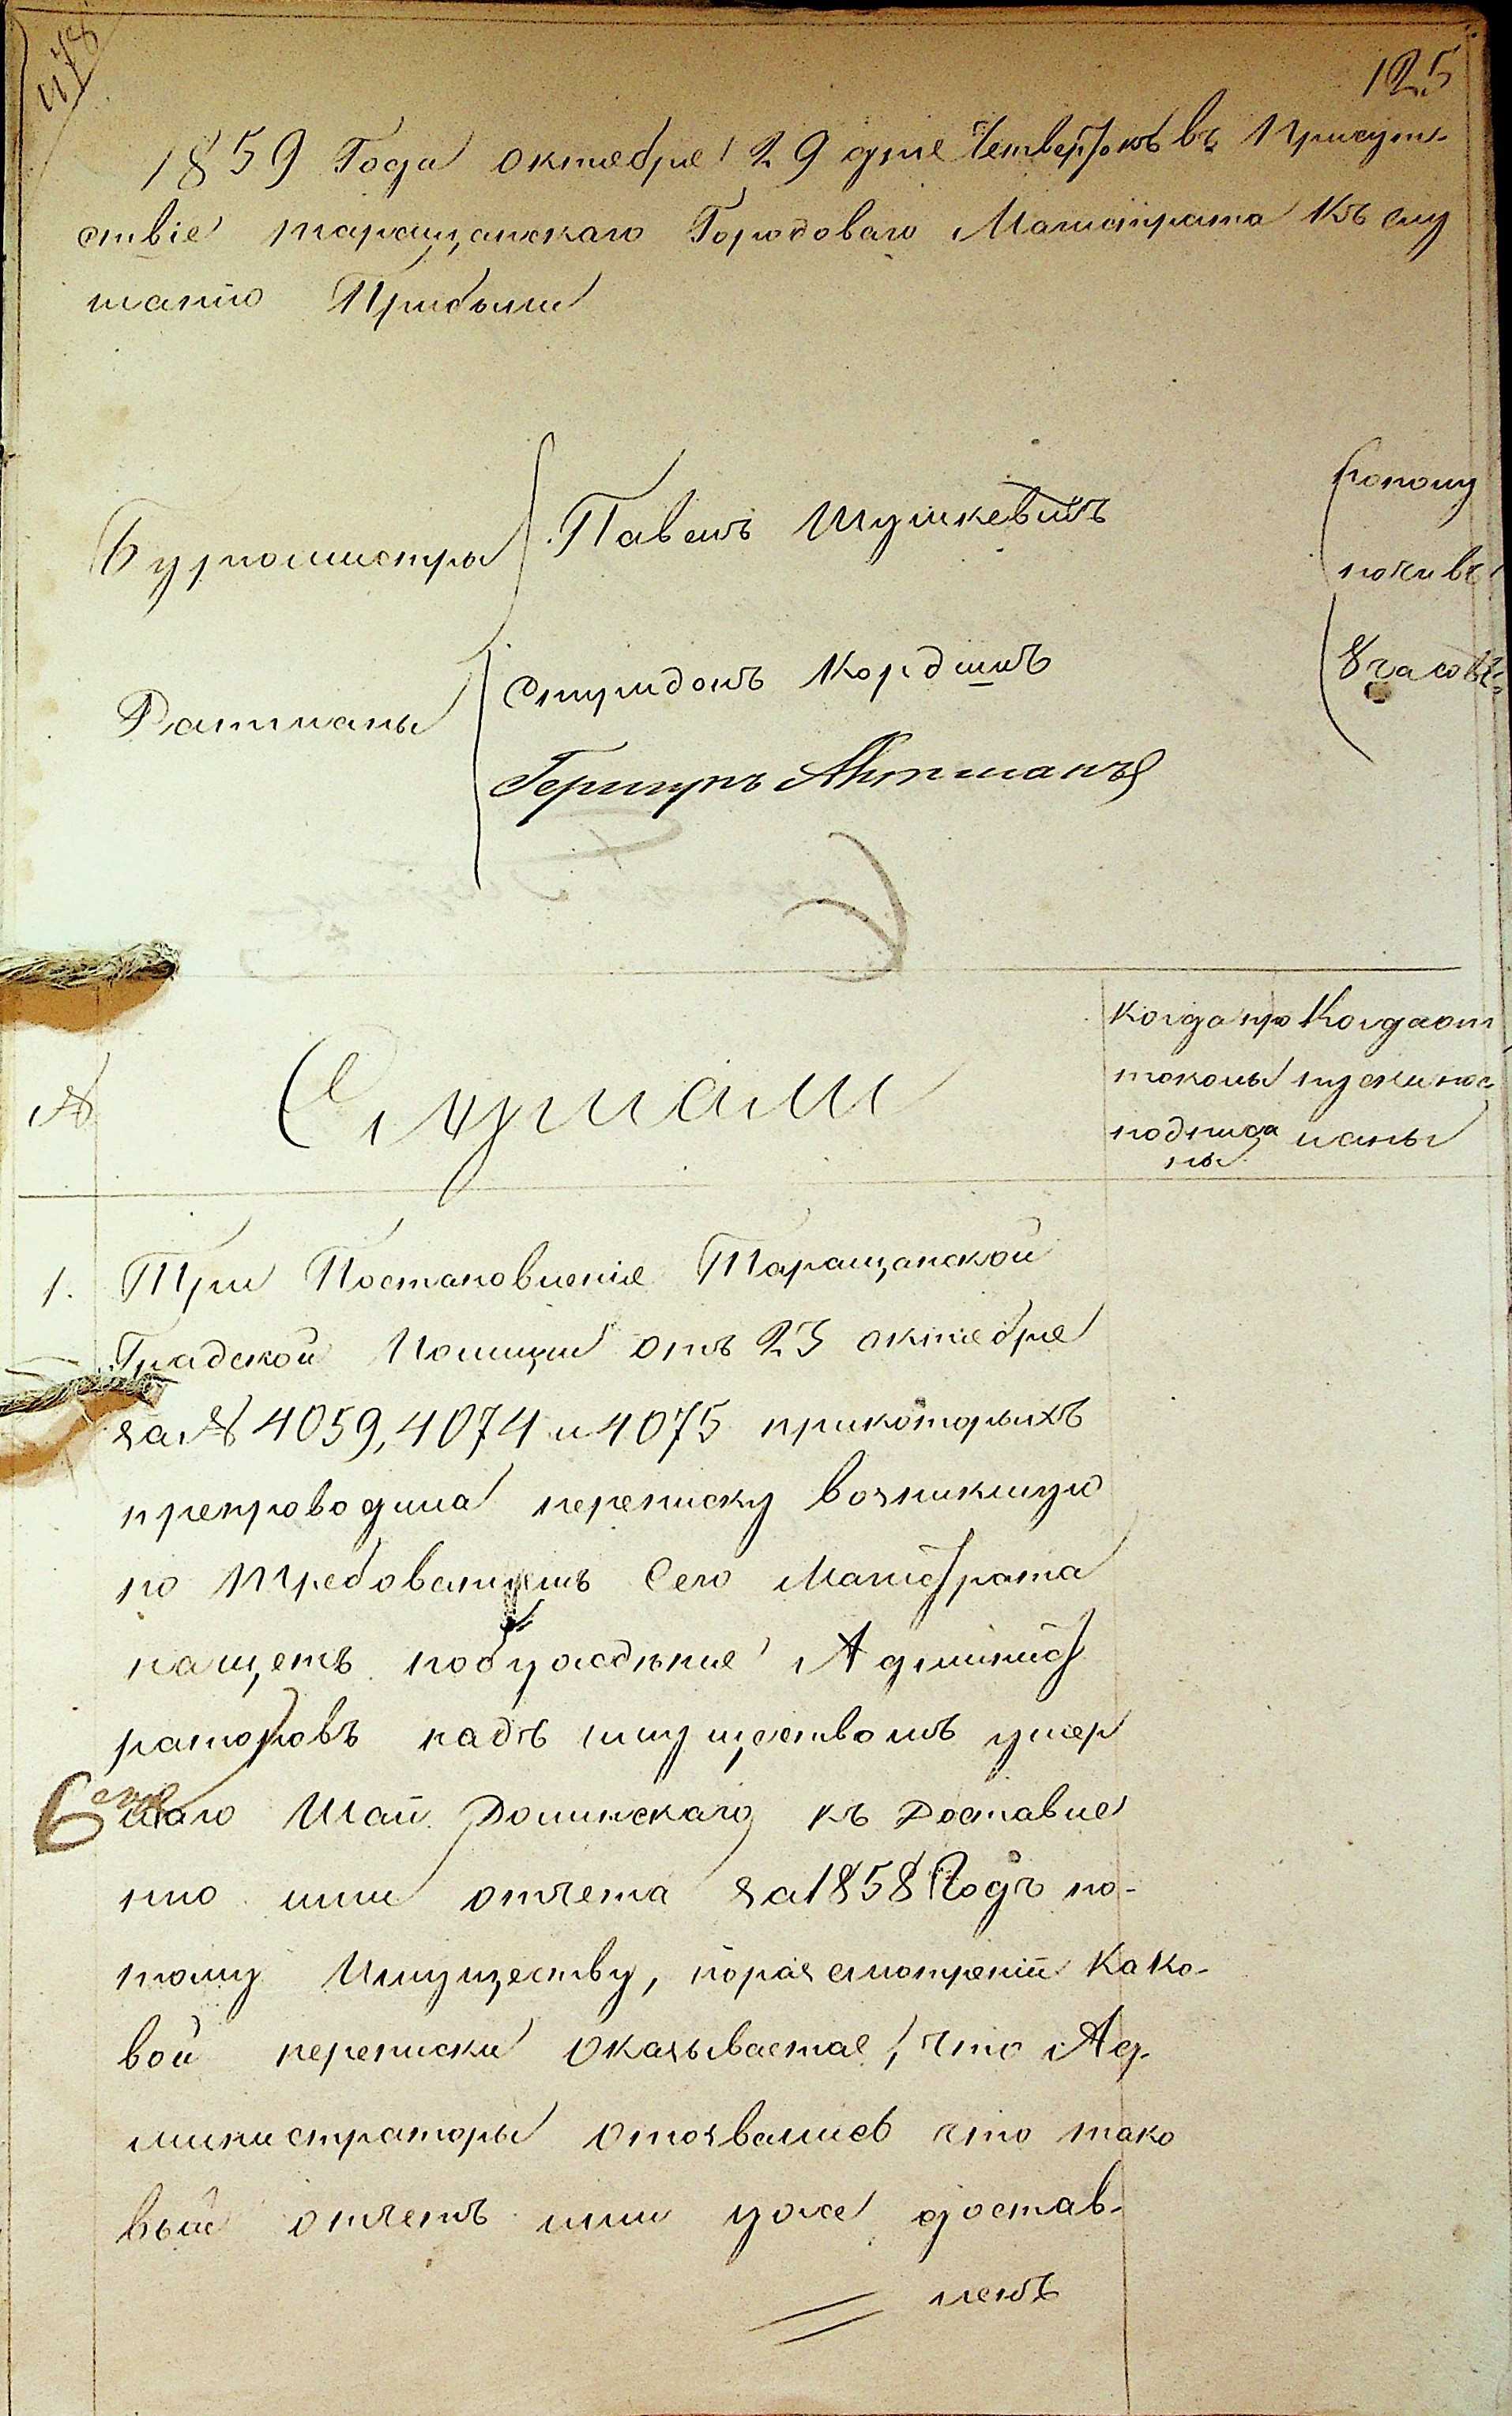 478
125
1859 Года октября 29 дня Четвертокъ въ Присут-
ствіе таращанскаго Городоваго Магистрата Къ слу
шанію Прибыли
Бургомистръ Павелъ Шушкевичъ
по полу
ночи въ
8 часовъ
Ратманы
Спиридонъ Кордишъ
Гершунъ Антманъ
№
Слушали
Когда про
токолы
подписа
ны
Когда от
пуски пос
ланы
1. Три Постановленія Таращанской
Градской Полиціи отъ 23 октября
за № 4059, 4074 и 4075 прикоторыхъ
препроводила переписку возникшую
по Требованіямъ Сего Магистрата
нащетъ побужденія Админист
раторовъ надъ имуществомъ умер
шаго Шаи Долинскаго къ доставле
нію ими отчета за 1858 Годъ по-
тому Имуществу, поразсмотреніи Како-
вой переписки Оказывается, что Ад-
министраторы Отозвались что тако
вый отчетъ ими уже достав-
ленъ